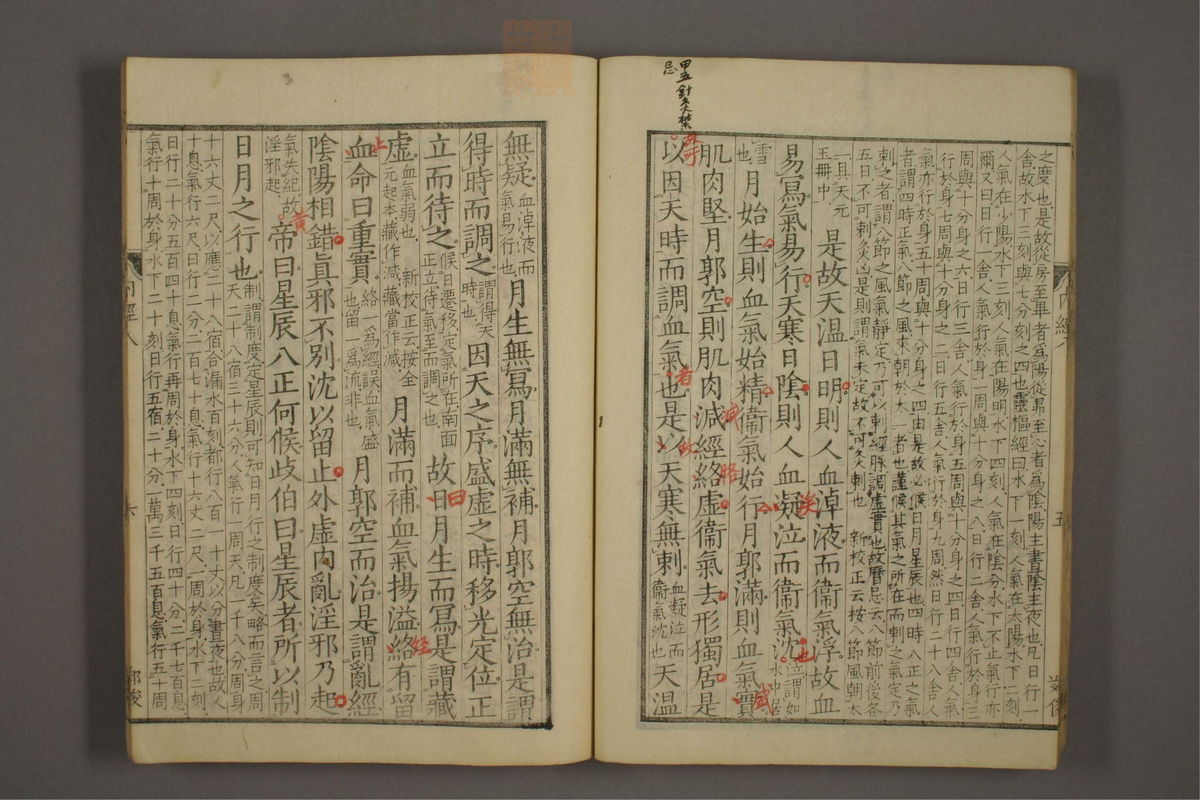 之度也是故從房至畢者爲陽從昴至心者爲陰陽主晝陰主夜也凡日行一
舍故水下三刻與七分刻之四也靈樞經曰水下一刻人氣在太陽水下二刻
人氣在少陽水下三刻人氣在陽明水下四刻人氣在陰分水下不止氣行亦
爾又曰日行一舍人氣行於身一周與十分身之八日行二舍人氣行於身三
周與十分身之六日行三舍人氣行於身五周與十分身之四日行四舍人氣
行於身七周與十分身之二日行五舍人氣行於身九周然日行二十八舍人
氣亦行於身五十周與十分身之四由是故必候日月星辰也四時八正之氣
者謂四時正氣八節之風來朝於太一者也謹候其氣之所在而刺之氣定乃
刺之者謂八節之風氣靜定乃可以刺經脉調虛實也故曆忌云八節前後各
五日不可刺灸凶是則謂氣未定故不可灸刺也 新校正云按八節風朝太
一具天元玉冊中 是故天温日明則人血淖液而衞氣浮故血
易寫氣易行天寒日陰則人血凝泣而衞氣沈 泣謂如水中居
雪也 月始生則血氣始精衞氣始行月郭滿則血氣實
肌肉堅月郭空則肌肉減經絡虛衞氣去形獨居是
以因天時而調血氣也是以天寒無刺 血凝泣而衞氣沈也 天温
甲五針灸禁忌
五
無疑 血淖液而氣易行也 月生無寫月滿無補月郭空無治是謂
得時而調之 謂得天時也 因天之序盛虛之時移光定位正
立而待之 候日遷移定氣所在南面正立待氣至而調之也 故日月生而寫是謂藏
虛 血氣弱也 新校正云按全元起本藏作減藏當作減 月滿而補血氣揚溢絡有留
血命曰重實 絡一爲經誤血氣盛也留一爲流非也 月郭空而治是謂亂經
陰陽相錯眞邪不別沈以留止外虛内亂淫邪乃起
氣失紀故淫邪起 帝曰星辰八正何候歧伯曰星辰者所以制
日月之行也 制謂制度定星辰則可知日月行之制度矣略而言之周天二十八宿三十六分人氣行一周天凡一千八分周身
十六丈二尺以應二十八宿合漏水百刻都行八百一十丈以分晝夜也故人
十息氣行六尺日行二分二百七十息氣行十六丈二尺一周於身水下二刻
日行二十分五百四十息氣行再周於身水下四刻日行四十分二千七百息
氣行十周於身水下二十刻日行五宿二十分一萬三千五百息氣行五十周
内經八
六